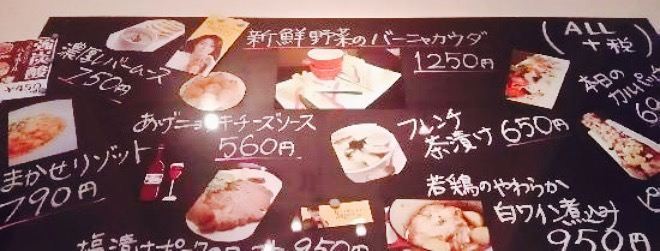 新鮮野菜のバーニャカウダ
1250円
(ALL
+税)
濃厚レバームース
750円
強炭酸
本日の
カルパッチ
60
あげニョッキ・チーズソース
560円
フレンチ
茶漬け 650円
まかせリゾット
790円
若鶏のやわらか
白ワイン煮込み
950円
塩漬けポークのロースト
950円